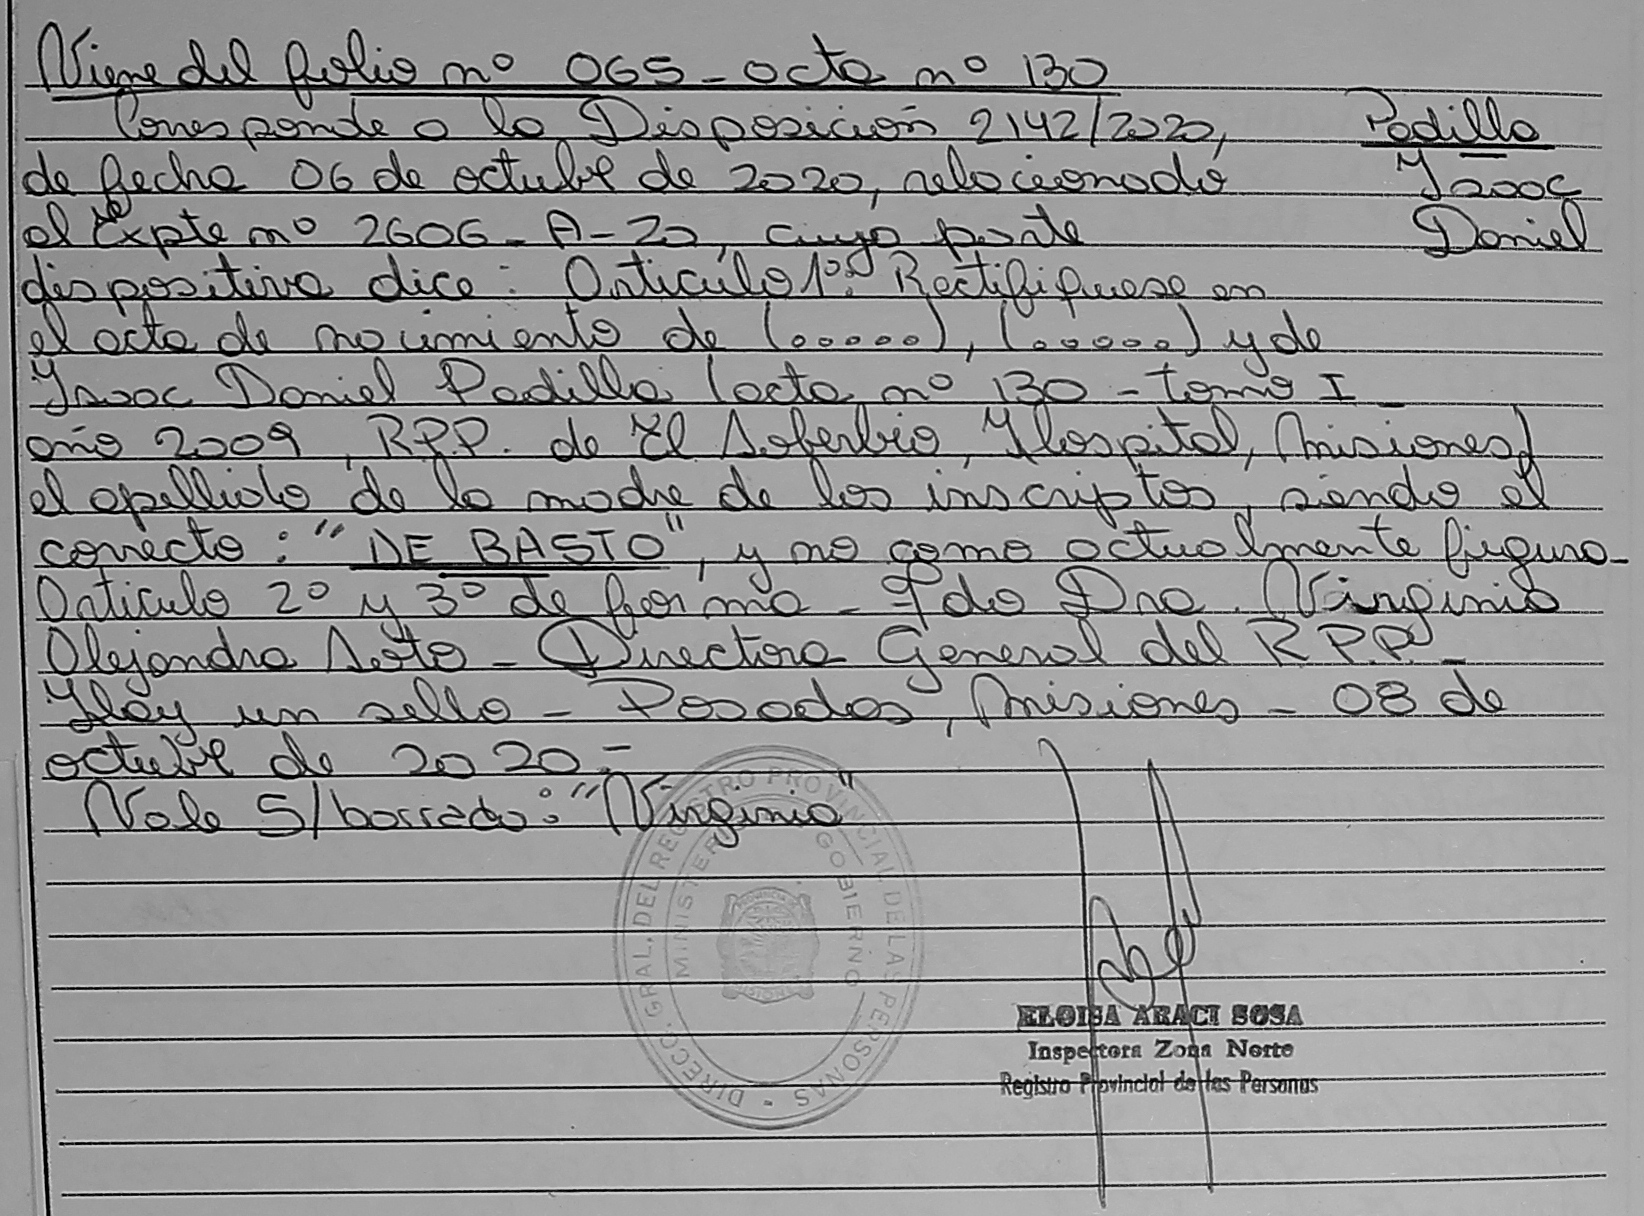 Viene del folio nº 065 - acta nº 130
Corresponde a la Disposición 2142/2020,
de fecha 06 de octubre de 2020, relacionado
al Expte nº 2606 - A - 20, cuyo parte
dispositiva dice: Artículo 1º: Rectifíquese en
el acta de nacimiento de (.....), (.....) y de
Isaac Daniel Padilla (acta nº 130 - tomo I -
año 2009, R.P.P. de El Soberbio, Hospital, Misiones)
el apellido de la madre de los inscriptos, siendo el
correcto: "DE BASTO", y no como actualmente figura -
Artículo 2º y 3º de forma - Fdo Dra. Virginia
Alejandra - Directora General del R.P.P. -
Hay un sello - Posadas, Misiones - 08 de
octubre de 2020.-
Vale S/borrado: "Virginia"
Padilla
Isaac
Daniel
DIRECC. GRAL. DEL REGISTRO PROVINCIAL DE LAS PERSONAS
MINISTERIO GOBIERNO
ELOISA ARACI SOSA
Inspectora Zona Norte
Registro Provincial de las Personas